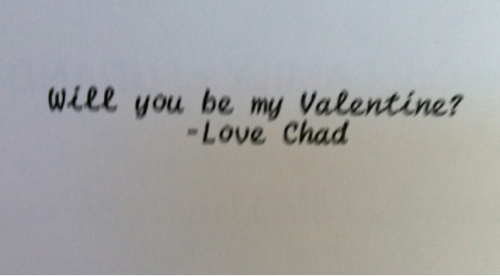 Will you be my Valentine?
-Love Chad